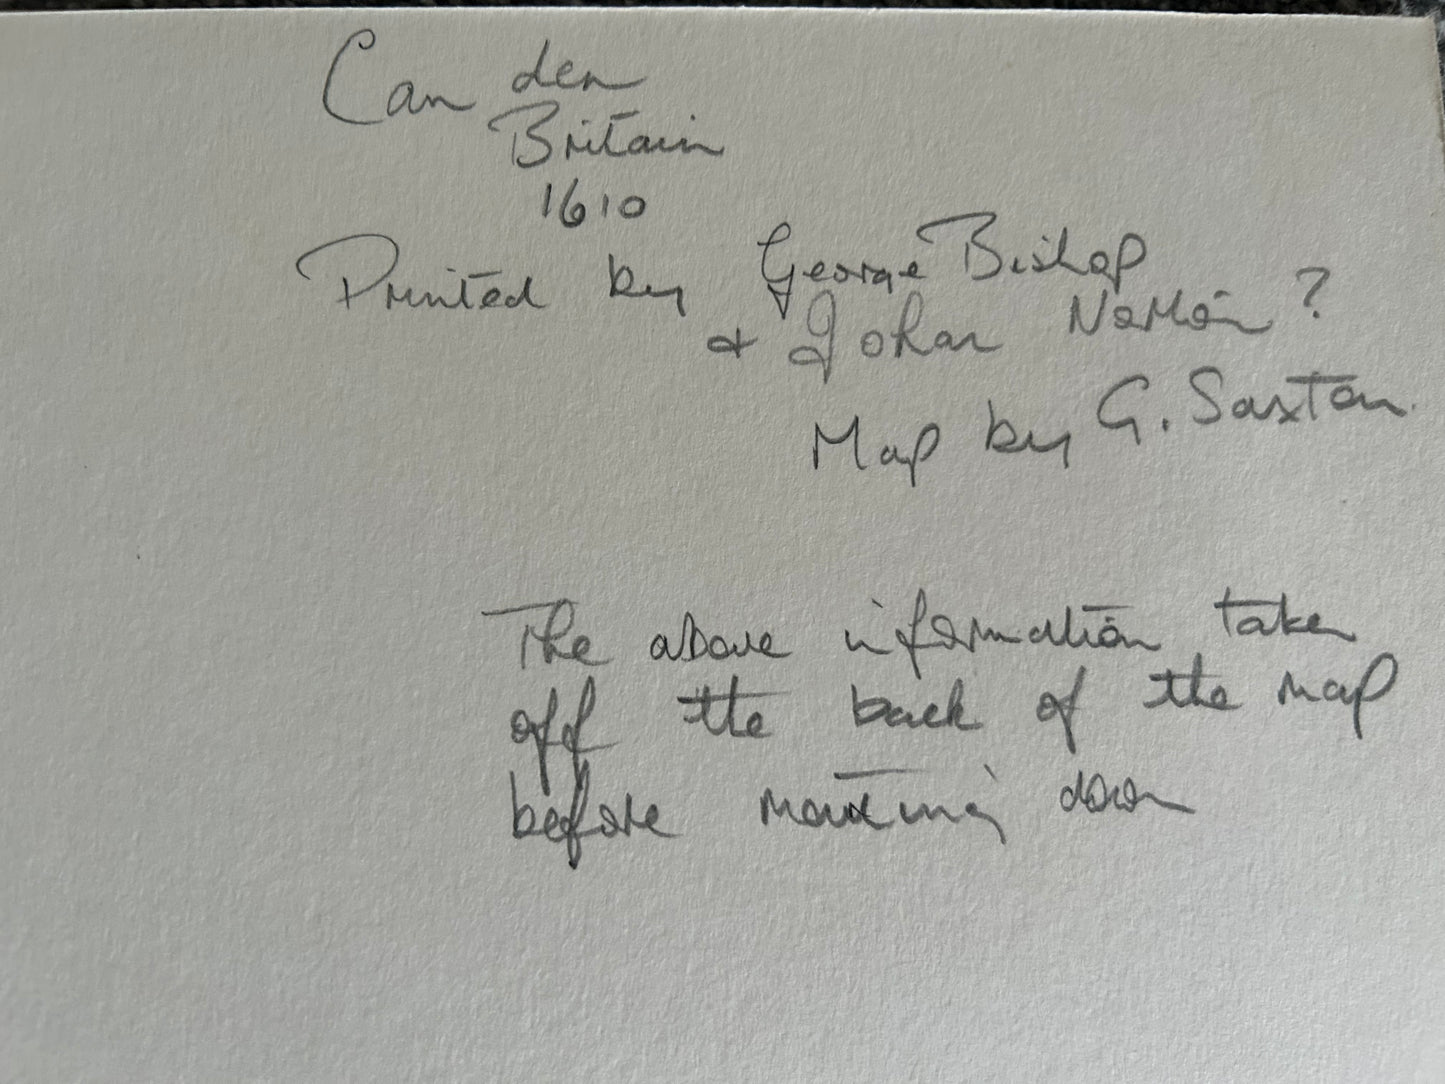 Can den
Britain
1610
Printed by George Bishop
& Johan Norton ?
Map by G. Saxton.
The above information taken
off the back of the map
before mounting down